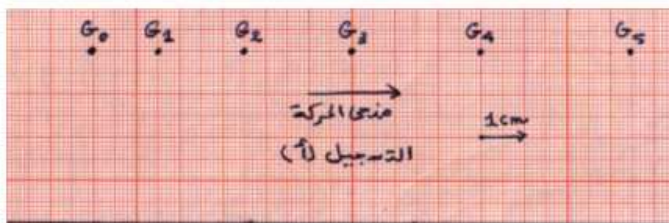 G₀ G₁ G₂ G₃ G₄ G₅
منحى الحركة
1cm
التسجيل (أ)